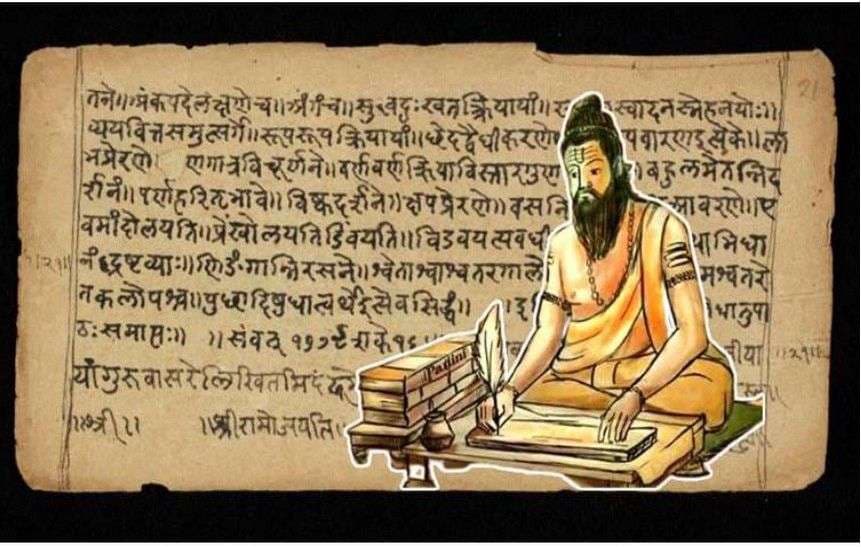 तने॥अंकपदेलक्षणेच॥अंगंच॥सुखदुःखतत्क्रियायां॥ स्वादनस्नेहनयोः॥ 21
व्ययवित्तसमुत्सर्गे॥रूपरूपक्रियायां॥छेदद्वैधीकरणे यवारणइत्येके॥ला
भप्रेरणे॥ व्रणगात्रविचूर्णने॥वर्णवर्णक्रियाविस्तारगुण बहुलमेतन्निद
र्शनं॥पर्णहरितभावे॥विष्कदर्शने॥क्षपप्रेरणे॥वसनि आवरणे॥ए
वमांदोलयति॥प्रेंखोलयतिडिवयति॥विडवयत्यवधी याभिधा
नंद्रष्टव्याः॥णिङंगान्निरसने॥श्वेताश्वाश्वतरगालो मश्वतरे
तकलोपश्च॥पुछादिषुधात्वर्थइत्येवसिद्धं॥ धातुपा
ठःसमाप्तः॥ ॥संवत् १७७९शके१६
यांगुरुवासरेलिखितमिदं
॥श्री॥ ॥श्रीरामोजयति॥
Padini